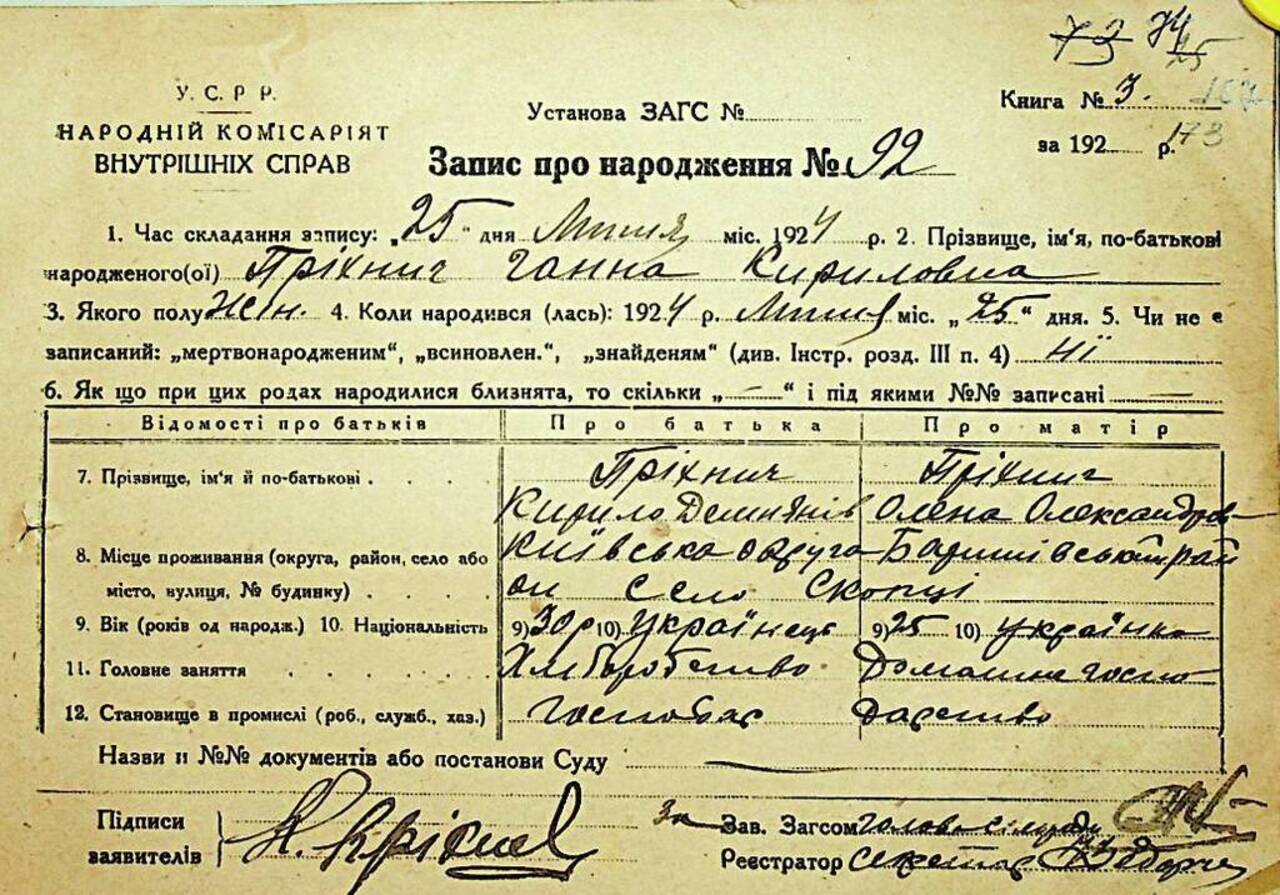 73 74
25
У. С. Р Р.
НАРОДНІЙ КОМІСАРІЯТ
ВНУТРІШНІХ СПРАВ
Установа ЗАГС №
Книга № 3.
за 192 р. 173
Запис про народження № 92
1. Час складання запису: „25" дня Липня міс. 1924 р. 2. Прізвище, ім'я, по-батькові
народженого(ої) Пріхнич Ганна Кириловна
3. Якого полу Жін. 4. Коли народився (лась): 1924 р. Липня міс. „25" дня. 5. Чи не є
записаний: „мертвонародженим", „всиновлен.", „знайденям" (див. Інстр. розд. III п. 4) Ні
6. Як що при цих родах народилися близнята, то скільки „—" і під якими №№ записані —
Відомості про батьків Про батька Про матір
7. Прізвище, ім'я й по-батькові . . . . Пріхнич Пріхнич
Кирило Демянів Олена Олександров
8. Місце проживання (округа, район, село або Київська округа Баришівський рай
місто, вулиця, № будинку) . . . . он село Скопці
9. Вік (років од народж.) 10. Національність 9) 30р 10) Українець 9) 25 10) українка
11. Головне заняття . . . . . . Хліборобство Домашне госпо
12. Становище в промислі (роб., служб., хаз.) Господар дарство
Назви и №№ документів або постанови Суду —
Підписи
заявителів
За Зав. Загсом голова сільради
Реєстратор секретар